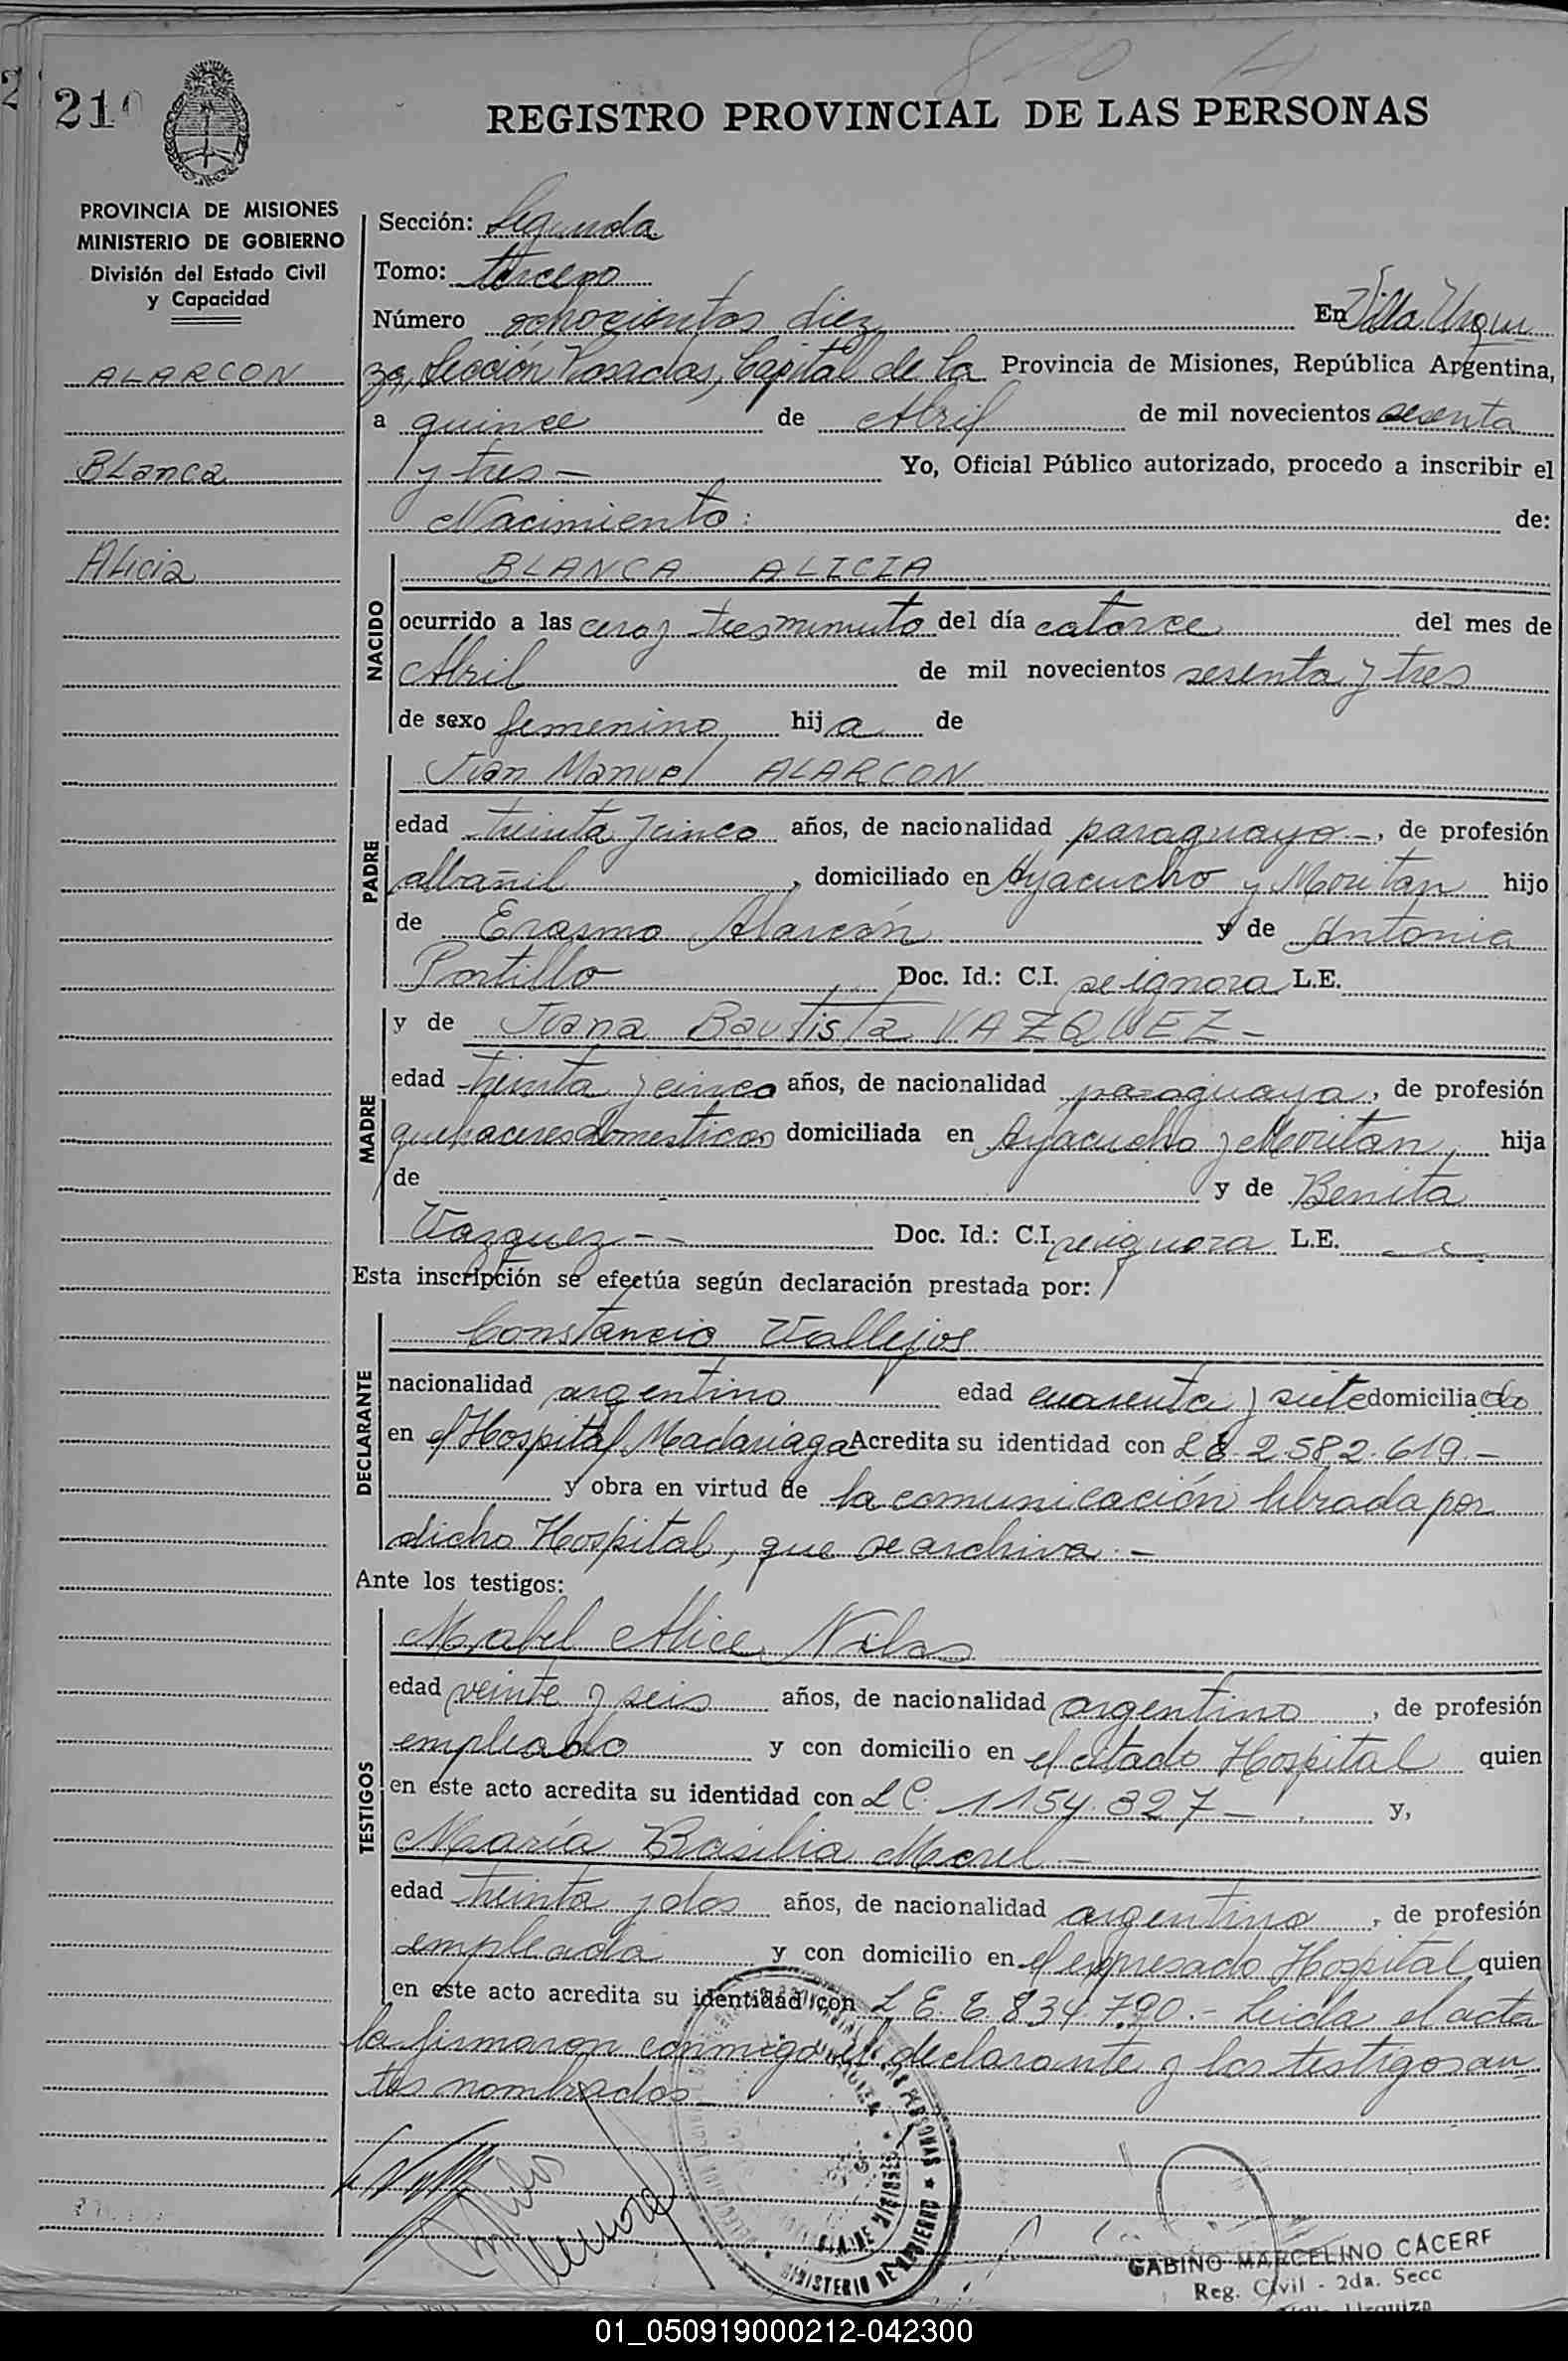 210
REGISTRO PROVINCIAL DE LAS PERSONAS
PROVINCIA DE MISIONES
MINISTERIO DE GOBIERNO
División del Estado Civil
y Capacidad
ALARCON
Blanca
Alicia
Sección: Segunda
Tomo: tercero
Número ochocientos diez En Villa Urqui
za, Sección Posadas, Capital de la Provincia de Misiones, República Argentina,
a quince de Abril de mil novecientos sesenta
y tres - Yo, Oficial Público autorizado, procedo a inscribir el
Nacimiento: de:
NACIDO
BLANCA ALICIA
ocurrido a las cero y tres minuto del día catorce del mes de
Abril de mil novecientos sesenta y tres
de sexo femenino hija de
PADRE
Juan Manuel ALARCON
edad treinta y cinco años, de nacionalidad paraguayo -, de profesión
albañil, domiciliado en Ayacucho y Moritan hijo
de Erasmo Alarcón y de Antonia
Portillo Doc. Id.: C.I. se ignora L.E.
MADRE
y de Juana Bautista VAZQUEZ -
edad treinta y cinco años, de nacionalidad paraguaya, de profesión
quehaceres domesticos domiciliada en Ayacucho y Moritan, hija
de y de Benita
Vazquez - - Doc. Id.: C.I. se ignora L.E.
Esta inscripción se efectúa según declaración prestada por:
DECLARANTE
Constancio Vallejos
nacionalidad argentino edad cuarenta y siete domiciliado
en el Hospital Madariaga Acredita su identidad con L E 2.582.619.-
y obra en virtud de la comunicación librada por
dicho Hospital, que se archiva.-
Ante los testigos:
TESTIGOS
Mabel Alice Nilos
edad veinte y seis años, de nacionalidad argentino, de profesión
empleado y con domicilio en el citado Hospital quien
en este acto acredita su identidad con L C. 1154.327 - y,
María Basilia Morel -
edad treinta y dos años, de nacionalidad argentino, de profesión
empleada y con domicilio en el expresado Hospital quien
en este acto acredita su identidad con L. E. 6.834.790.- Leida el acta
la firmaron conmigo el declarante y los testigos an
tes nombrados -
MINISTERIO DE GOBIERNO
GABINO MARCELINO CACERE
Reg. Civil - 2da. Secc
Urquiza
01_050919000212-042300